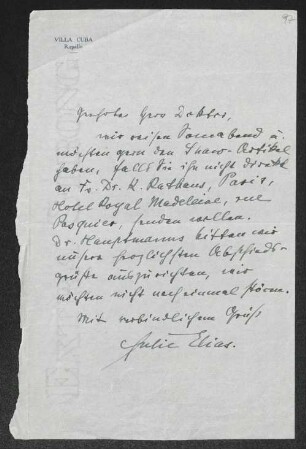 97
VILLA CUBA
Rapallo
Geehrter Herr Doktor,
wir reisen Sonnabend u.
möchten gern den Shaw-Artikel
haben, falls Sie ihn nicht direkt
an Fr. Dr. K. Rathaus, Paris,
Hotel Royal Madeleine, rue
Pasquier, senden wollen.
Dr. Hauptmanns bitten wir
unsere herzlichsten Abschieds-
grüße auszurichten, wir
möchten nicht noch einmal stören.
Mit verbindlichem Gruß
Julie Elias.